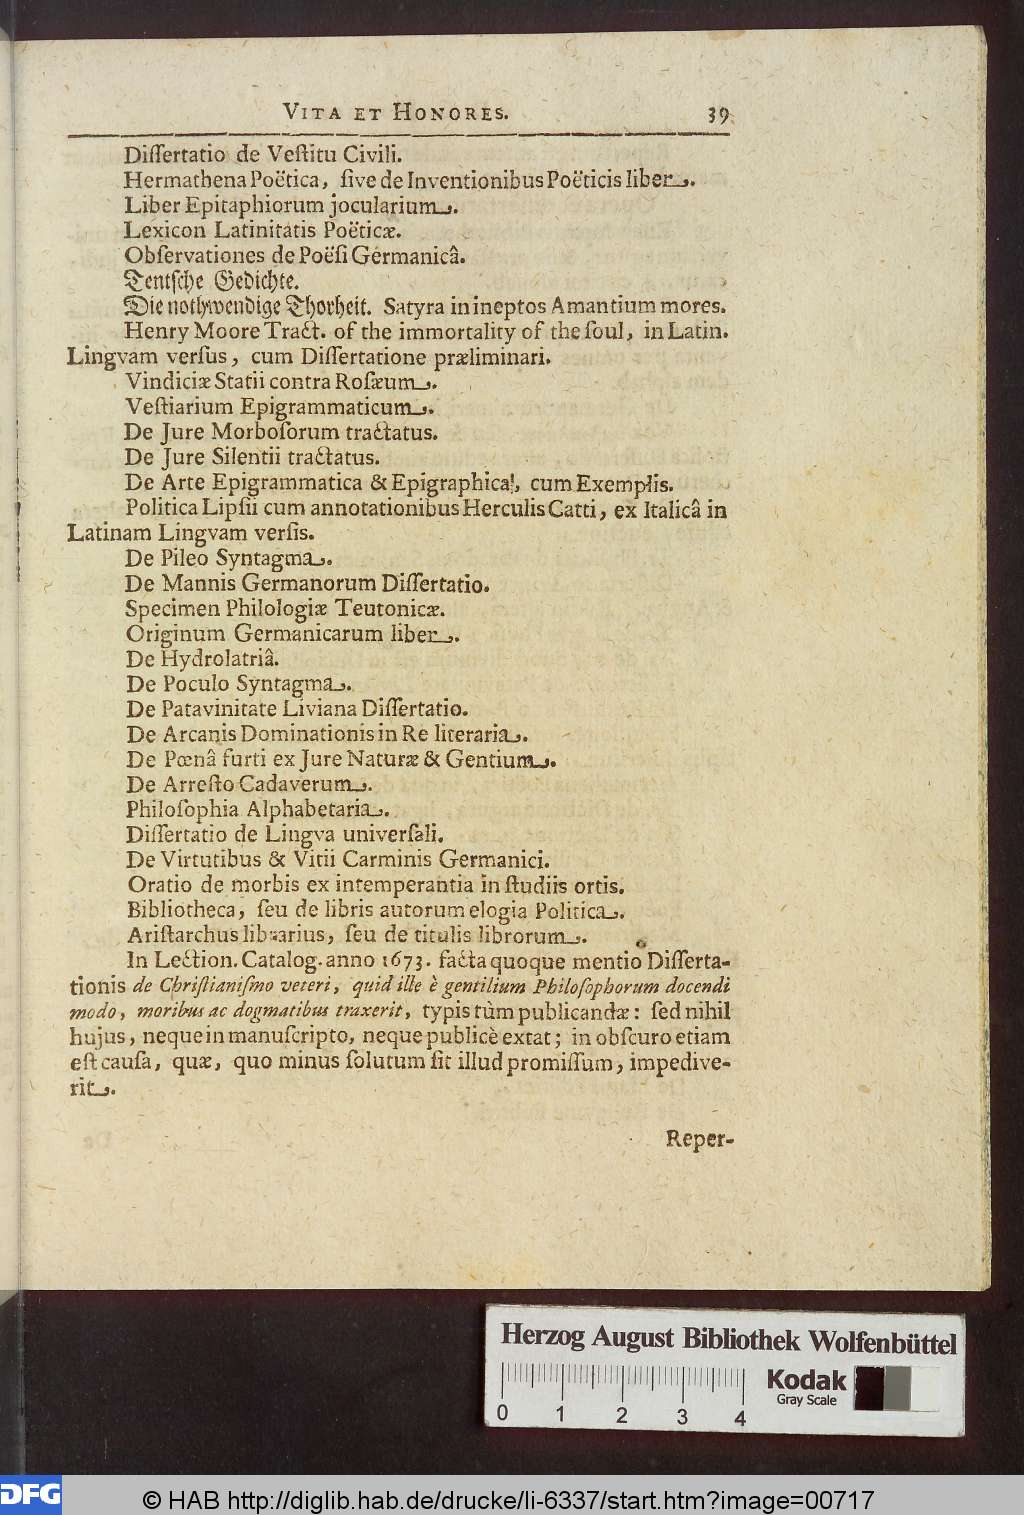 VITA ET HONORES. 39
Diſſertatio de Veſtitu Civili.
Hermathena Poëtica, ſive de Inventionibus Poëticis liber.
Liber Epitaphiorum jocularium.
Lexicon Latinitatis Poëticæ.
Obſervationes de Poëſi Germanicâ.
Tentſche Gedichte.
Die nothwendige Thorheit. Satyra in ineptos Amantium mores.
Henry Moore Tract. of the immortality of the ſoul, in Latin.
Lingvam verſus, cum Diſſertatione præliminari.
Vindiciæ Statii contra Roſæum.
Veſtiarium Epigrammaticum.
De Jure Morboſorum tractatus.
De Jure Silentii tractatus.
De Arte Epigrammatica & Epigraphica!, cum Exemplis.
Politica Lipſii cum annotationibus Herculis Catti, ex Italicâ in
Latinam Lingvam verſis.
De Pileo Syntagma.
De Mannis Germanorum Diſſertatio.
Specimen Philologiæ Teutonicæ.
Originum Germanicarum liber.
De Hydrolatriâ.
De Poculo Syntagma.
De Patavinitate Liviana Diſſertatio.
De Arcanis Dominationis in Re literaria.
De Pœnâ furti ex Jure Naturæ & Gentium.
De Arreſto Cadaverum.
Philoſophia Alphabetaria.
Diſſertatio de Lingva univerſali.
De Virtutibus & Vitii Carminis Germanici.
Oratio de morbis ex intemperantia in ſtudiis ortis.
Bibliotheca, ſeu de libris autorum elogia Politica.
Ariſtarchus librarius, ſeu de titulis librorum.
In Lection. Catalog. anno 1673. facta quoque mentio Diſſerta-
tionis de Chriſtianiſmo veteri, quid ille è gentilium Philoſophorum docendi
modo, moribus ac dogmatibus traxerit, typis tùm publicandæ: ſed nihil
hujus, neque in manuſcripto, neque publicè extat; in obſcuro etiam
eſt cauſa, quæ, quo minus ſolutum ſit illud promiſſum, impedive-
rit.
Reper-
Herzog August Bibliothek Wolfenbüttel
0 1 2 3 4
Kodak
Gray Scale
DFG
© HAB http://diglib.hab.de/drucke/li-6337/start.htm?image=00717